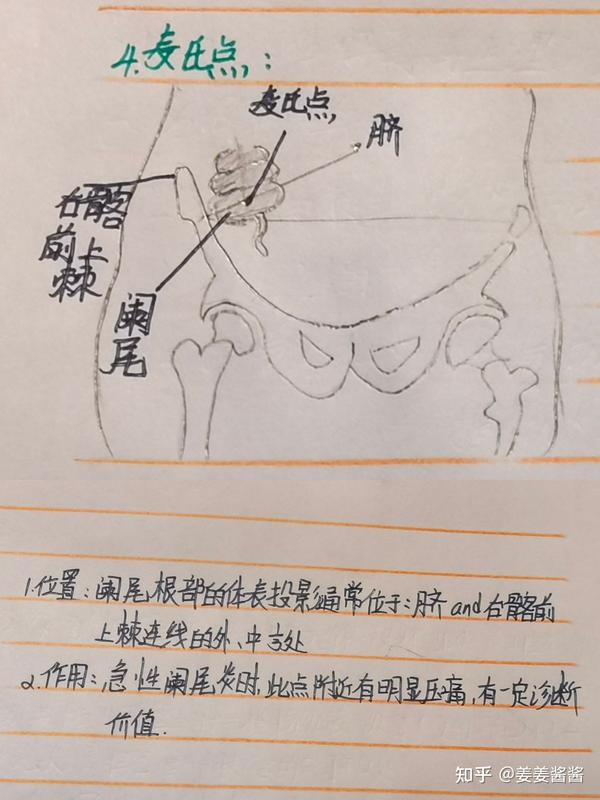 4.麦氏点:
麦氏点
脐
右髂
前上
棘
阑
尾
1.位置:阑尾根部的体表投影通常位于:脐and右髂前
上棘连线的外、中⅓处
2.作用:急性阑尾炎时,此点附近有明显压痛,有一定诊断
价值.
知乎 @姜姜酱酱